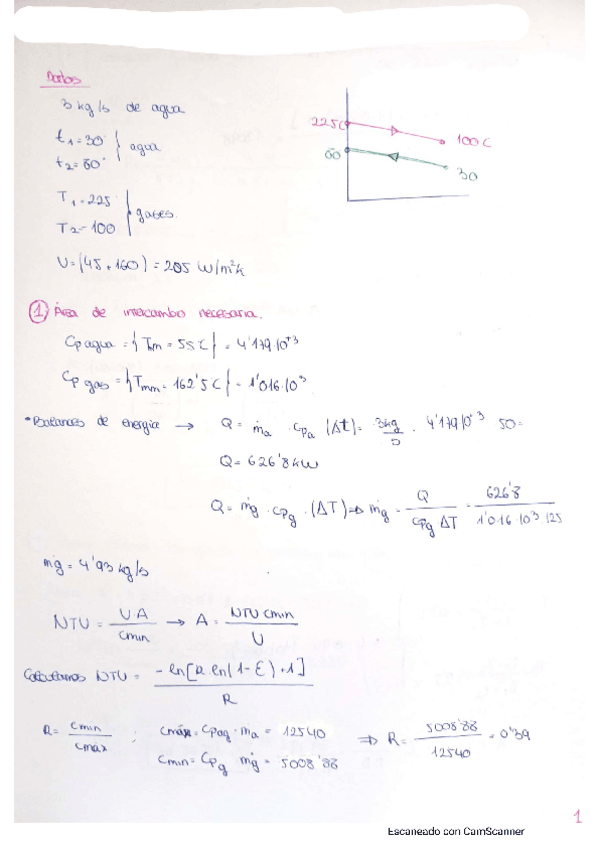 Datos
3 kg/s de agua
t1 = 30°
t2 = 80° } agua
T1 = 225
T2 = 100 } gases.
U = (45 + 160) = 205 W/m²k
225C
100C
80
30
① Área de intercambio necesaria.
Cp agua = { Tm = 55C } = 4'179 10^+3
Cp gas = { Tmm = 162'5C } = 1'016·10^3
• Balances de energía → Q = ṁa · cpa (Δt) = 3kg/s · 4'179 10^3 50 =
Q = 626'8 kW
Q = ṁg · cpg · (ΔT) ⇒ ṁg = Q / cpg ΔT = 626'8 / 1'016 10^3 125
ṁg = 4'93 kg/s
NTU = U A / cmin → A = NTU cmin / U
Calculamos NTU = - ln[R ln(1-ε) + 1] / R
R = cmin / cmax ; cmáx = cpag · ma = 12540 ⇒ R = 5008'88 / 12540 = 0'39
cmin = cpg ṁg = 5008'88
1
Escaneado con CamScanner